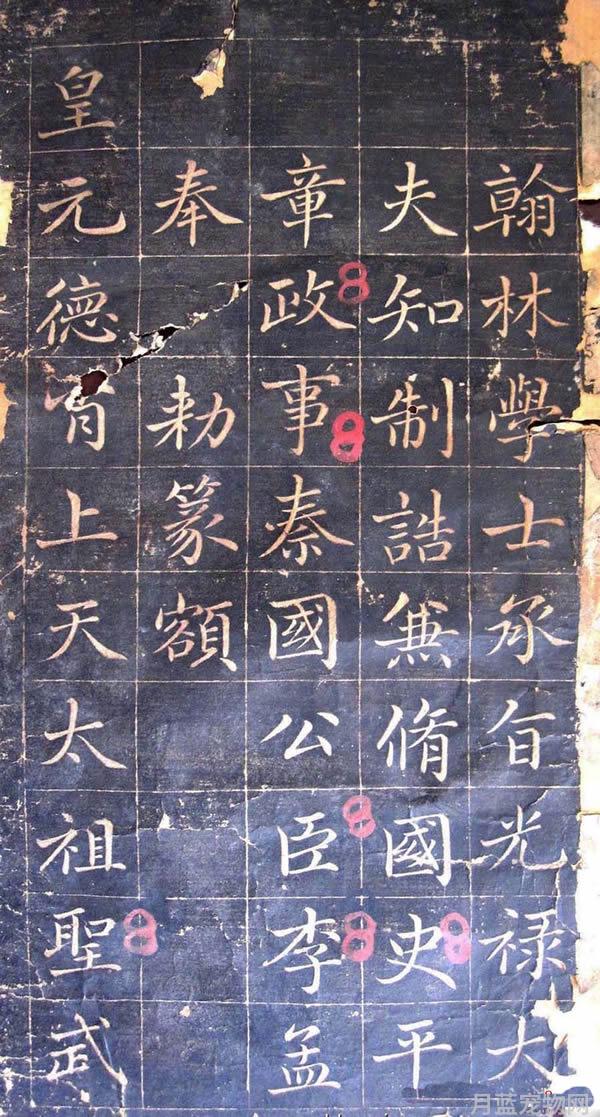 翰林學士承旨光禄大
夫知制誥兼脩國史平
章政事秦國公臣李孟
奉勑篆額
皇元德育上天太祖聖武
月蓝宠物网